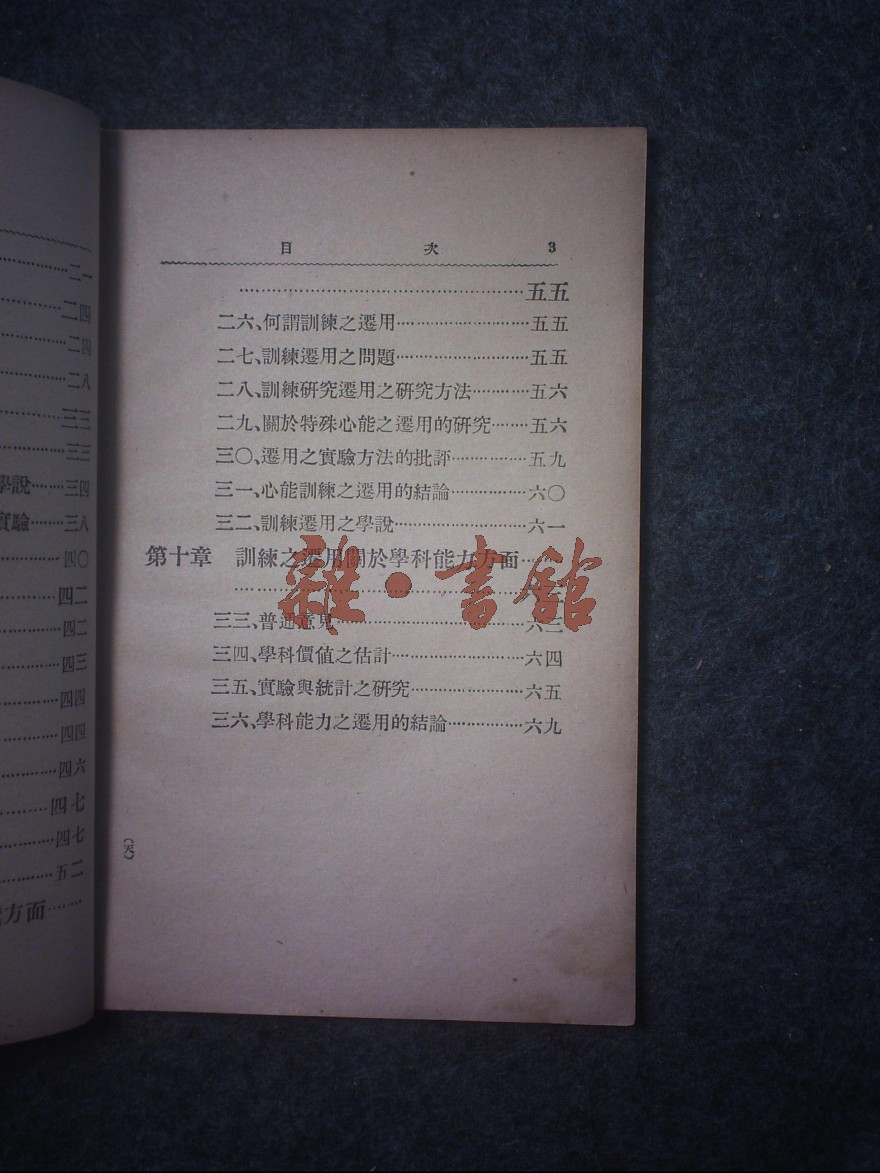 目次 3
……五五
二六、何謂訓練之遷用……五五
二七、訓練遷用之問題……五五
二八、訓練研究遷用之研究方法……五六
二九、關於特殊心能之遷用的研究……五六
三〇、遷用之實驗方法的批評……五九
三一、心能訓練之遷用的結論……六〇
三二、訓練遷用之學說……六一
第十章 訓練之遷用關於學科能力方面……
三三、普通意見……六三
三四、學科價値之估計……六四
三五、實驗與統計之研究……六五
三六、學科能力之遷用的結論……六九
雜·書館
二一
四二
二四
二八
三三
三三
學說……三四
實驗……三八
四〇
四二
四二
四三
四四
四四
四六
四七
四七
五二
方面……